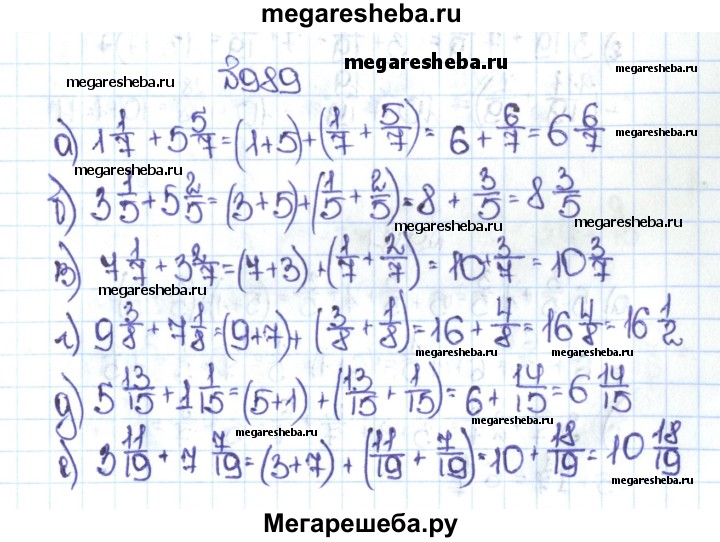 megaresheba.ru
№989 megaresheba.ru megaresheba.ru megaresheba.ru
а) 1 1/7 + 5 5/7 = (1+5) + (1/7 + 5/7) = 6 + 6/7 = 6 6/7 megaresheba.ru
megaresheba.ru
б) 3 1/5 + 5 2/5 = (3+5) + (1/5 + 2/5) = 8 + 3/5 = 8 3/5
megaresheba.ru megaresheba.ru
в) 7 1/7 + 3 2/7 = (7+3) + (1/7 + 2/7) = 10 + 3/7 = 10 3/7
megaresheba.ru
г) 9 3/8 + 7 1/8 = (9+7) + (3/8 + 1/8) = 16 + 4/8 = 16 4/8 = 16 1/2
megaresheba.ru megaresheba.ru
д) 5 13/15 + 1 1/15 = (5+1) + (13/15 + 1/15) = 6 + 14/15 = 6 14/15
megaresheba.ru megaresheba.ru
е) 3 11/19 + 7 7/19 = (3+7) + (11/19 + 7/19) = 10 + 18/19 = 10 18/19
megaresheba.ru
Мегарешеба.ру